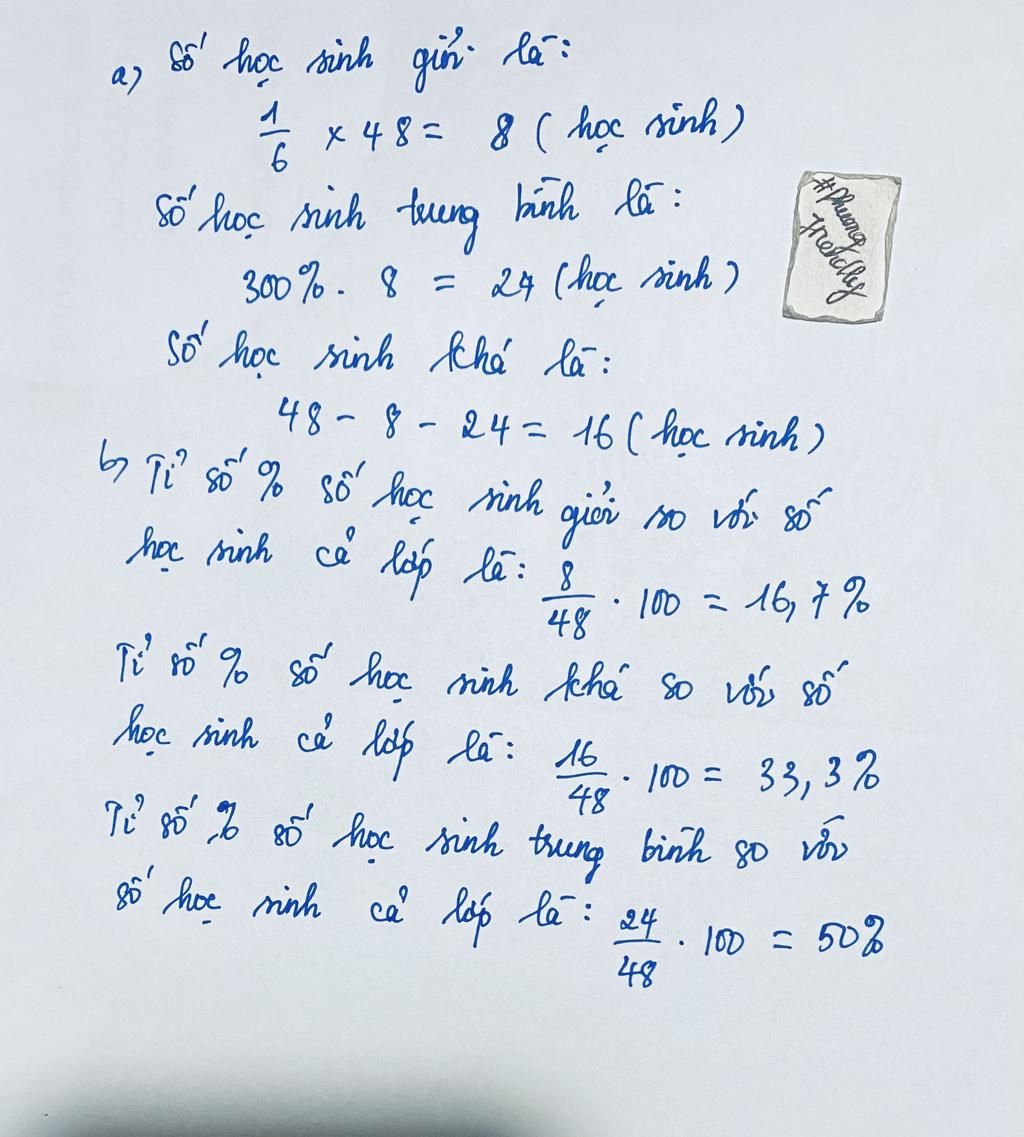 a) Số học sinh giỏi là:
1/6 x 48 = 8 (học sinh)
Số học sinh trung bình là:
300%. 8 = 24 (học sinh)
Số học sinh khá là:
48 - 8 - 24 = 16 (học sinh)
b) Tỉ số % số học sinh giỏi so với số
học sinh cả lớp là: 8/48 . 100 = 16,7%
Tỉ số % số học sinh khá so với số
học sinh cả lớp là: 16/48 . 100 = 33,3%
Tỉ số % số học sinh trung bình so với
số học sinh cả lớp là: 24/48 . 100 = 50%
#Phuong